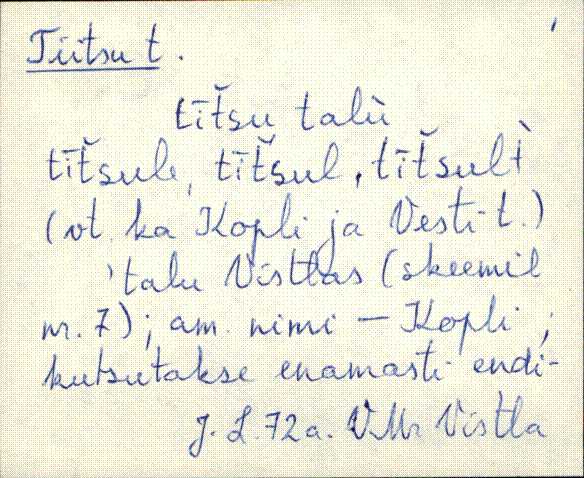 Tiitsu t.
tīt̆su talù
tīt̆sule, tīt̆sul, tīt̆sult̀
(vt. ka Kopli ja Vesti t.)
'talu Vistlas (skeemil
nr. 7); am. nimi – Kopli;
kutsutakse enamasti endi-
J. L. 72a. VMr Vistla